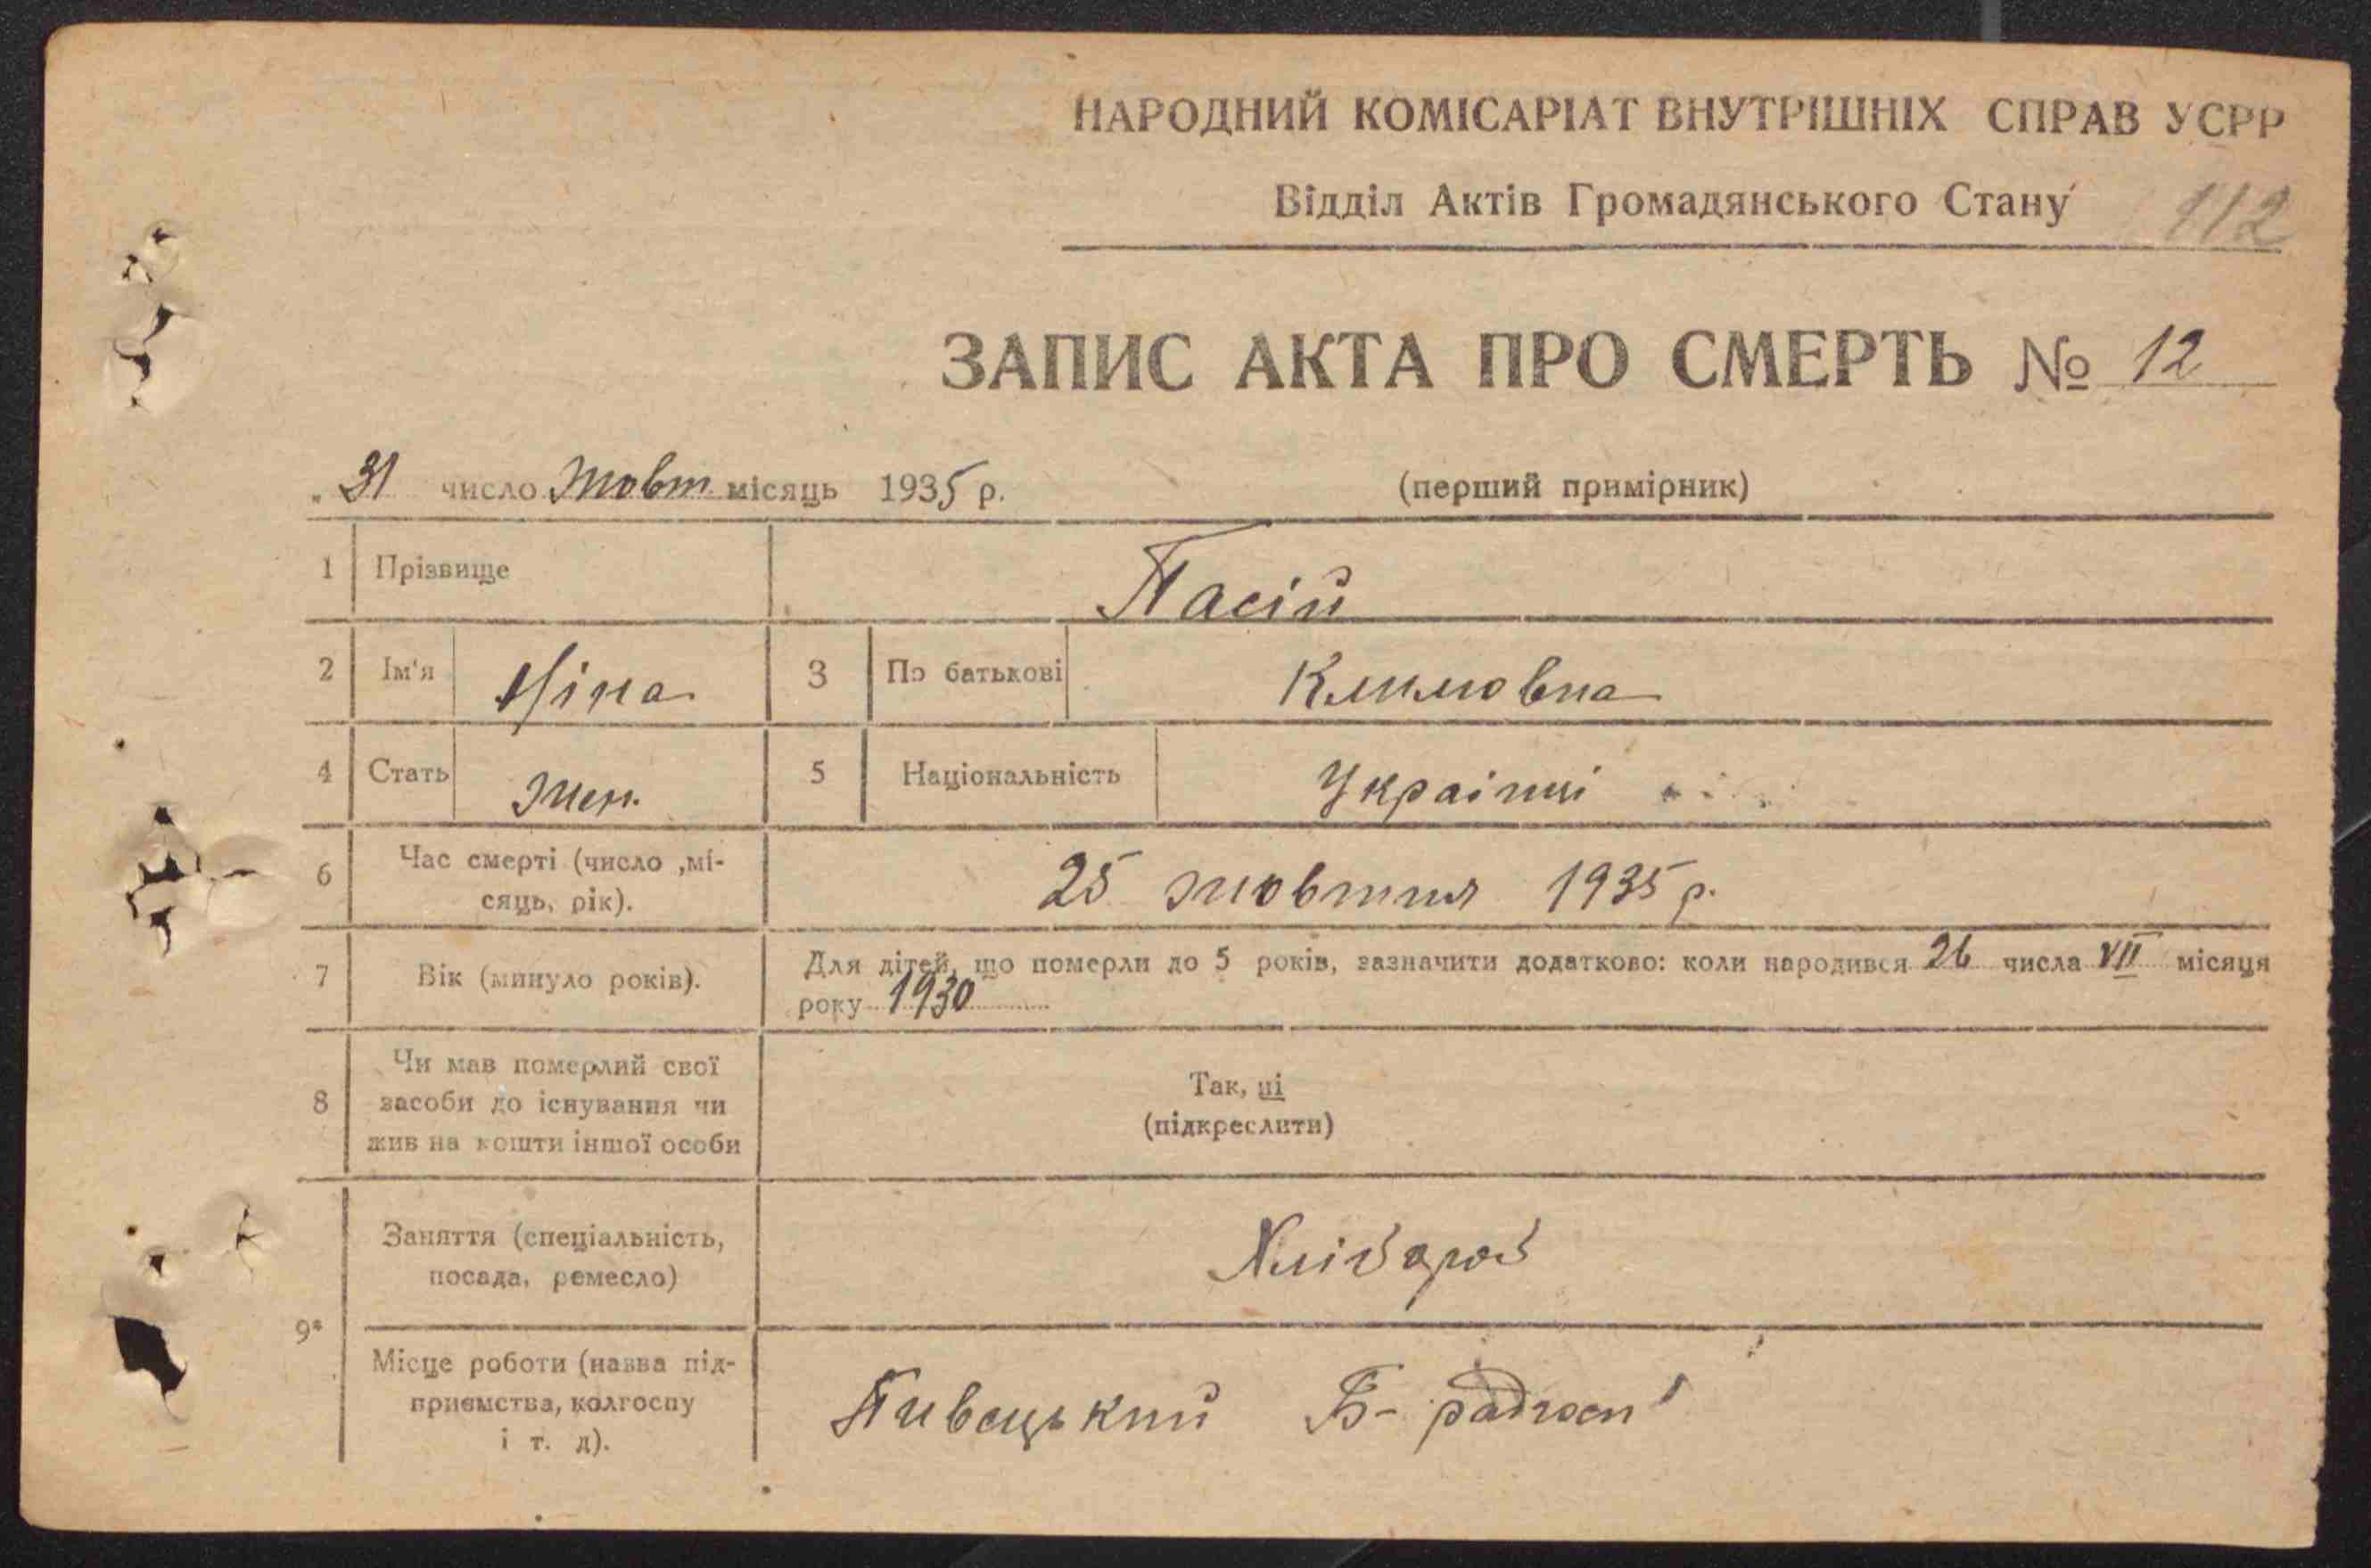 НАРОДНИЙ КОМІСАРІАТ ВНУТРІШНІХ СПРАВ УСРР
Відділ Актів Громадянського Стану
112
ЗАПИС АКТА ПРО СМЕРТЬ № 12
„ 31 число Жовт місяць 1935 р. (перший примірник)
1 Прізвище Пасій
2 Ім'я Ніна 3 По батькові Климовна
4 Стать Жен. 5 Національність
6 Час смерті (число ,мі-
сяць, рік). 25 жовтня 1935 р.
7 Вік (минуло років). Для дітей, що померли до 5 років, зазначити додатково: коли народився 26 числа VII місяця
року 1930
8 Чи мав померлий свої
засоби до існування чи
жив на кошти іншої особи
Так, ні
(підкреслити)
9* Заняття (спеціальність,
посада, ремесло) Хлібороб
Місце роботи (назва під-
приємства, колгоспу
і т. д).
Пивецький Б-